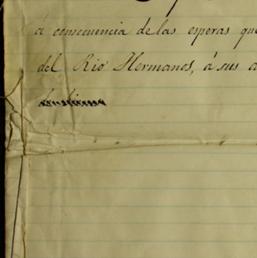 á consecuencia de las esperas que
del Rio Hermanos, á sus a